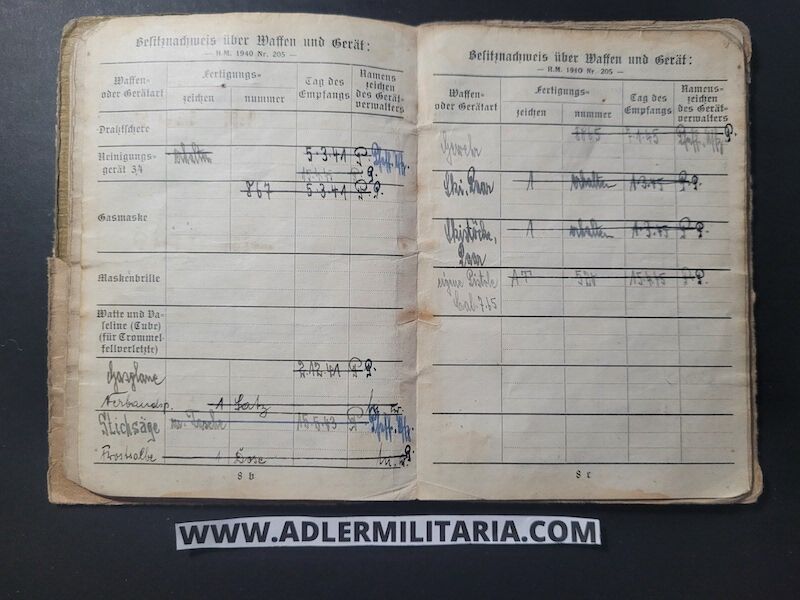 Besitznachweis über Waffen und Gerät:
— H.M. 1940 Nr. 205 —
Waffen- oder Gerätart
Fertigungs-
zeichen
nummer
Tag des Empfangs
Namens zeichen des Gerät- verwalters
Drahtschere
Reinigungs- gerät 34 erhalten 5.3.41 P.
Gasmaske 867 5.3.41 P. P.
Maskenbrille
Watte und Va- seline (Tube) (für Trommel- fellverletzte)
Gasplane 2.12.41 P. P.
Verbandsp. 1 Satz
Stichsäge m. Tasche 15.5.43 P.
Frostsalbe 1 Dose
8 b
Besitznachweis über Waffen und Gerät:
— H.M. 1940 Nr. 205 —
Waffen- oder Gerätart
Fertigungs-
zeichen
nummer
Tag des Empfangs
Namens- zeichen des Gerät- verwalters
Gewehr P.
Ski, Paar 1 erhalten 1.3.45 P. P.
Skistöcke, Paar 1 erhalten 1.3.45 P. P.
eigene Pistole Cal. 7.65 P. P.
8 c
WWW.ADLERMILITARIA.COM